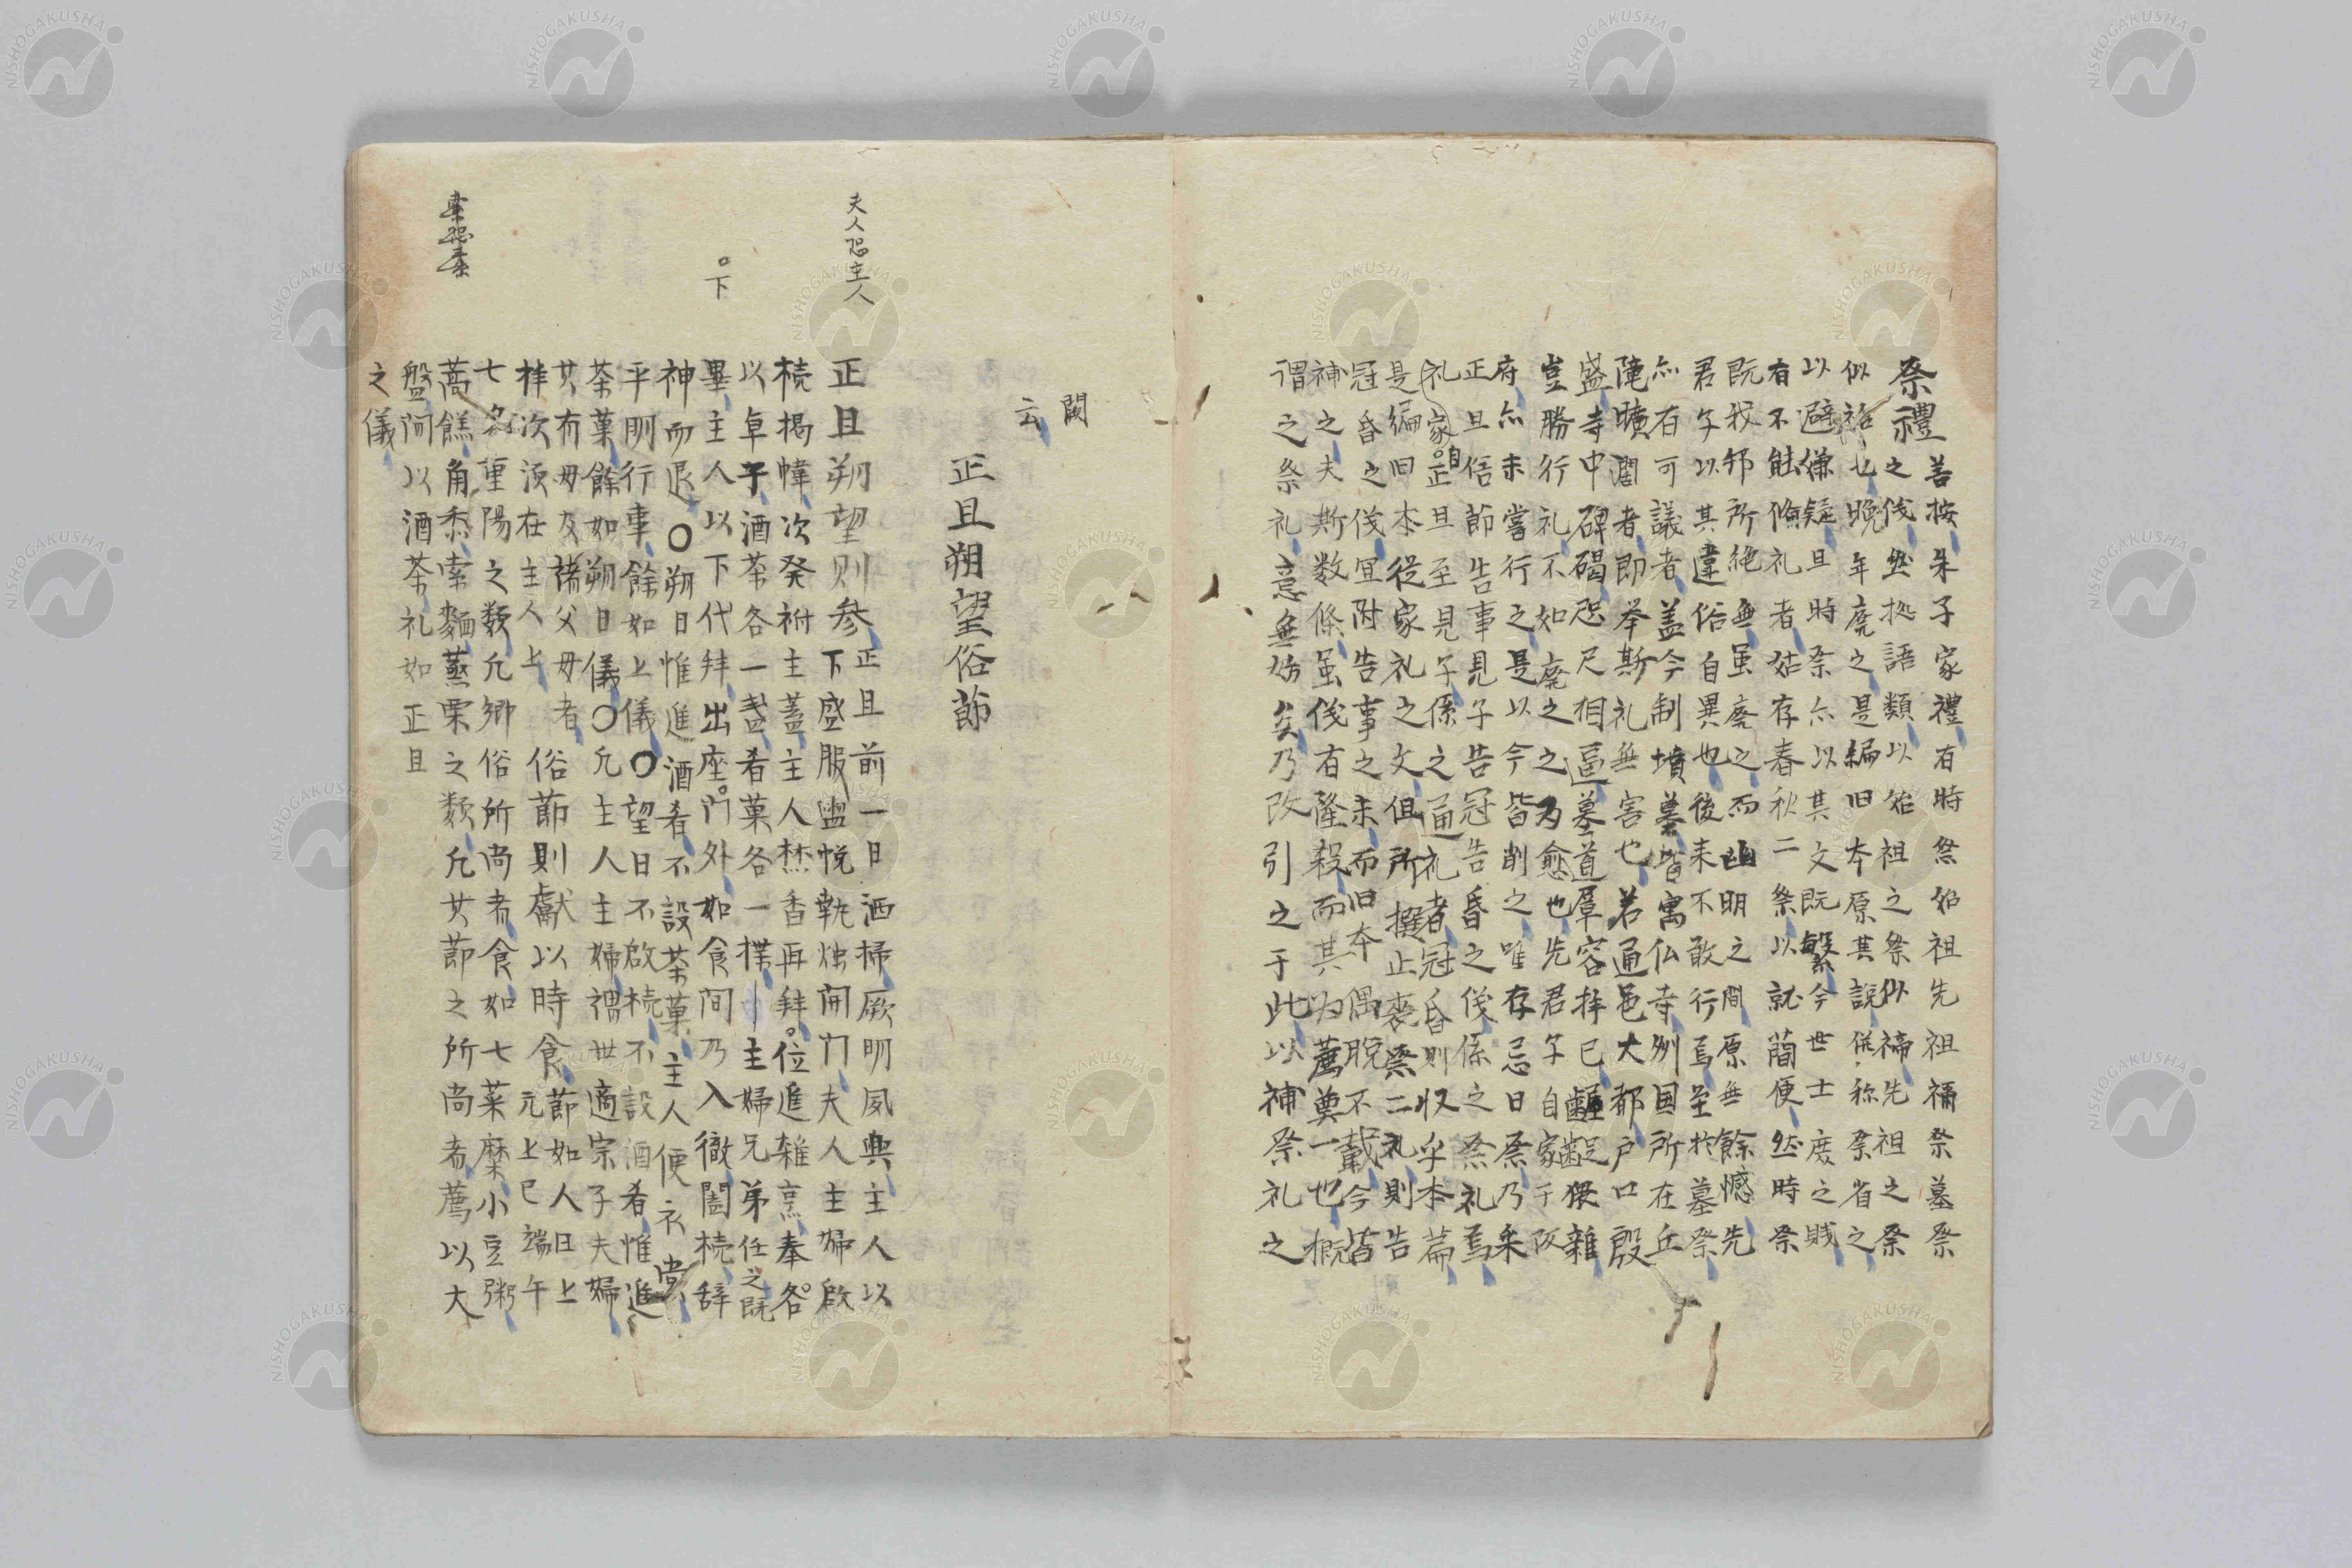 祭禮
善按朱子家禮有時祭始祖先祖禰祭墓祭
之儀然拠語類以始祖之祭似禘先祖之祭
似祫也晚年廃之是編旧本原其説併称祭省之
以避嫌疑且時祭亦以其文既繁今世士庶之賤
有不能備礼者姑存春秋二祭以就簡便然時祭
既我邦所絶無虽廃之而幽明之間原無餘憾先
君子以其違俗自異也後来不敢行焉至於墓祭
亦有可議者盖今制墳墓皆寓仏寺州国所在丘
陵曠濶者即举斯礼無害也若通邑大都戸口殷
盛寺中碑碣咫尺相逼墓道羣容拝已齷齪猥雜
豈勝行礼不如廃之之為愈也先君子自家于阪
府亦未嘗行之是以今皆削之唯存忌日祭乃采
正旦俗節告事見子告冠告昏之儀係之祭礼焉
礼家正旦至見子係之通礼者冠昏則収乎本篇
自
是編旧本従家礼之文但所撰止喪祭二礼則告
冠昏之儀宜附告事之末而旧本偶脱不載今皆
補之夫斯数條虽儀有隆殺而其为薦奠一也概
謂之祭礼意無妨矣乃改引之于此以補祭礼之
闕
云
正旦朔望俗節
夫人恐主人
正旦朔望則参
正旦前一日洒掃厥明夙興主人以
下盛服盥帨執燭開門夫人主婦啟
櫝揭幃次発祔主蓋主人焚香再拜位進雜烹奉各
以卓子酒茶各一盞肴菓各一楪主婦兄弟任之既
畢主人以下代拜出座門外如食間乃入徹闔櫝辞
下
神而退〇朔日惟進酒肴不設茶菓主人便衣裳
平明行事餘如上儀〇望日不啟櫝不設酒肴惟進
茶菓餘如朔日儀〇凡主人主婦謂世適宗子夫婦
其有母及諸父母者
拝次須在主人上
俗節則獻以時食
節如人日上
元上巳端午
七夕重陽之類凡郷俗所尚者食如七菜糜小豆粥
蒿餻角黍索麵蒸栗之類凡其節之所尚者薦以大
盤間以酒茶礼如正旦
之儀